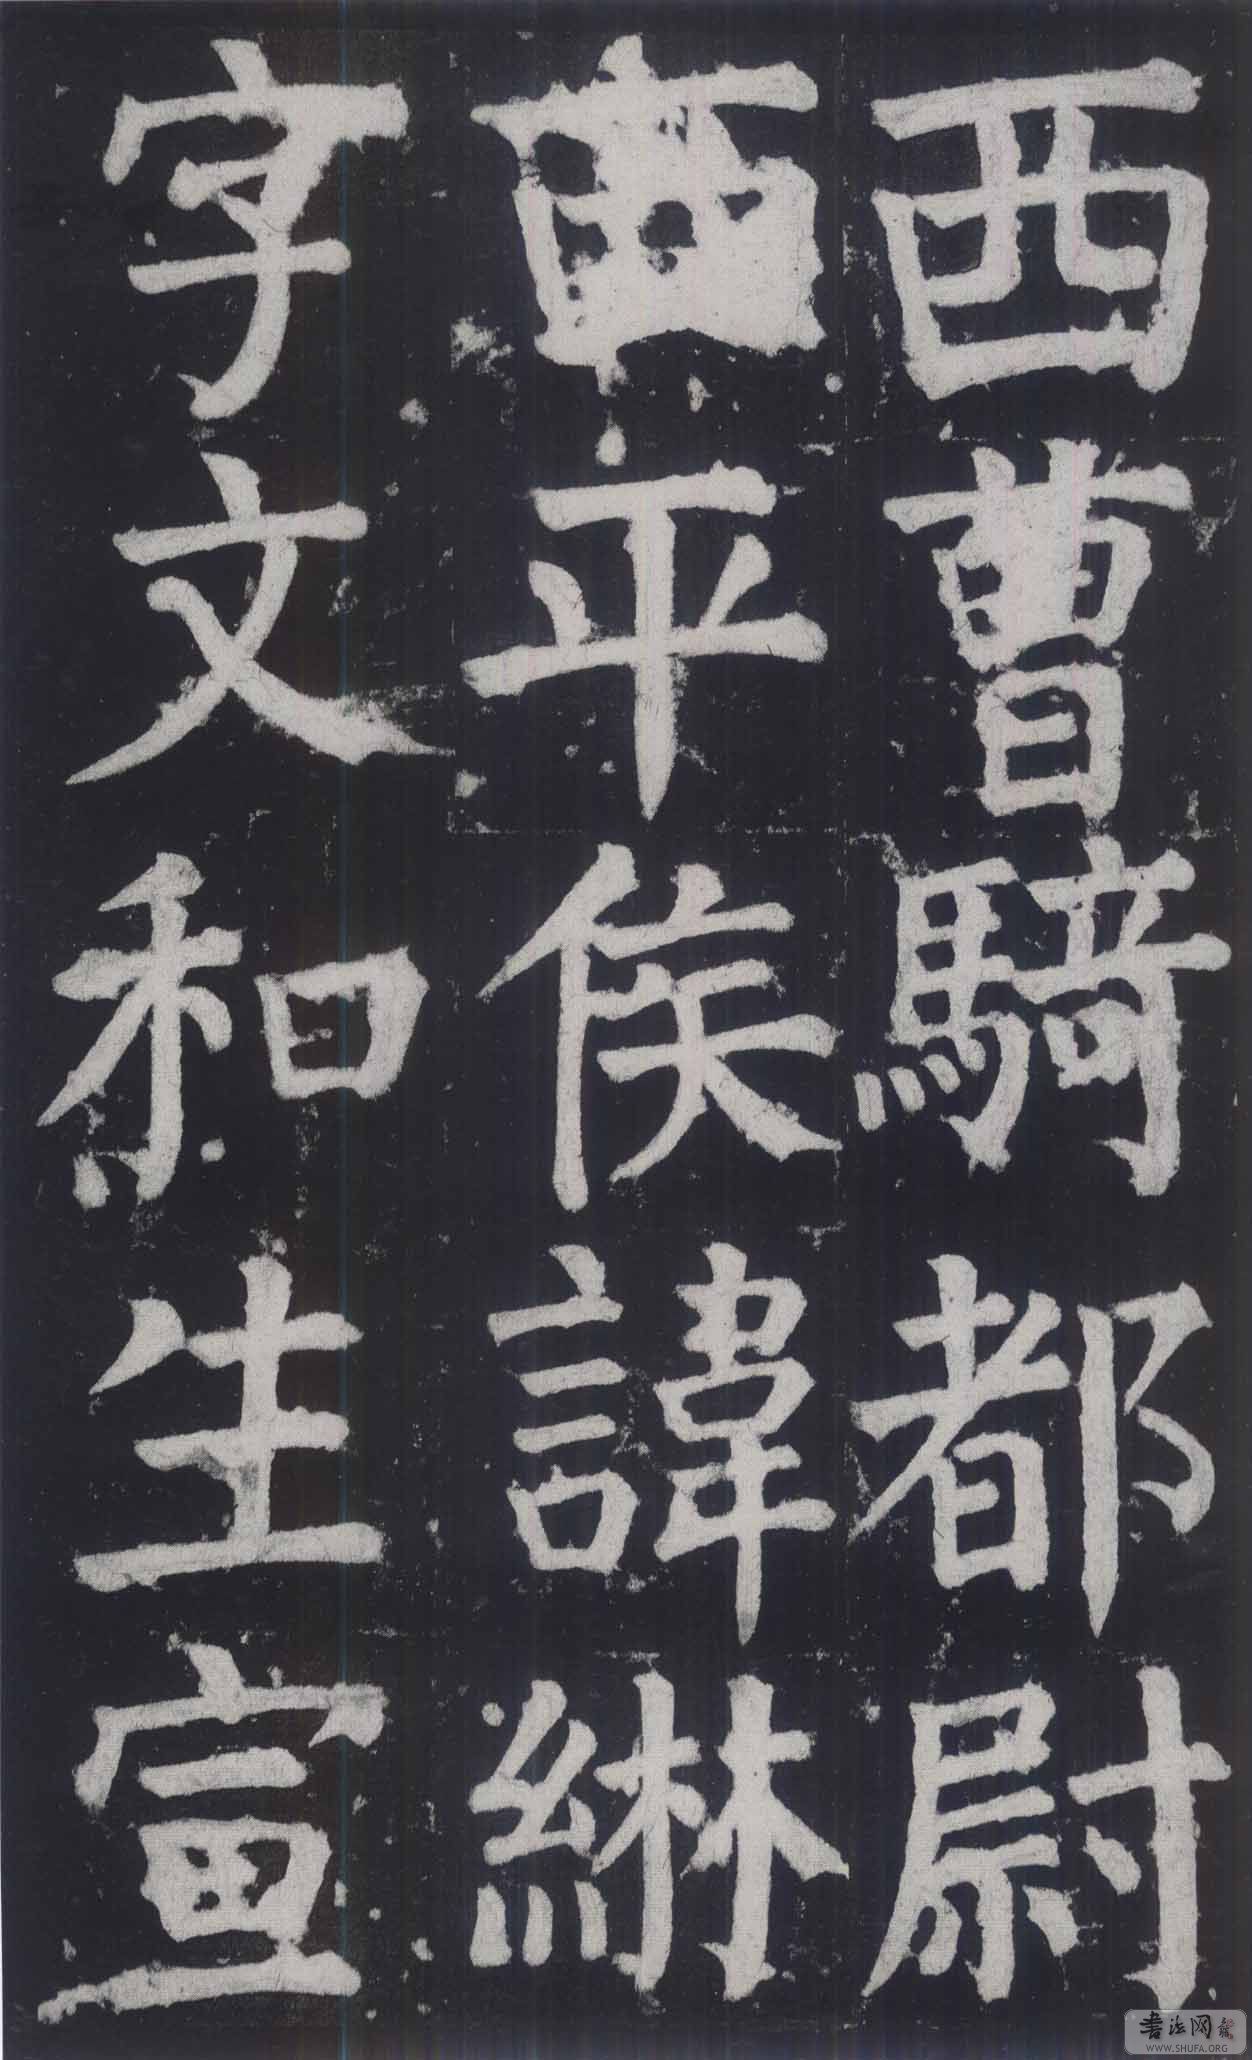 西曹騎都尉
西平侯諱綝
字文和生宣
书法网
WWW.SHUFA.ORG